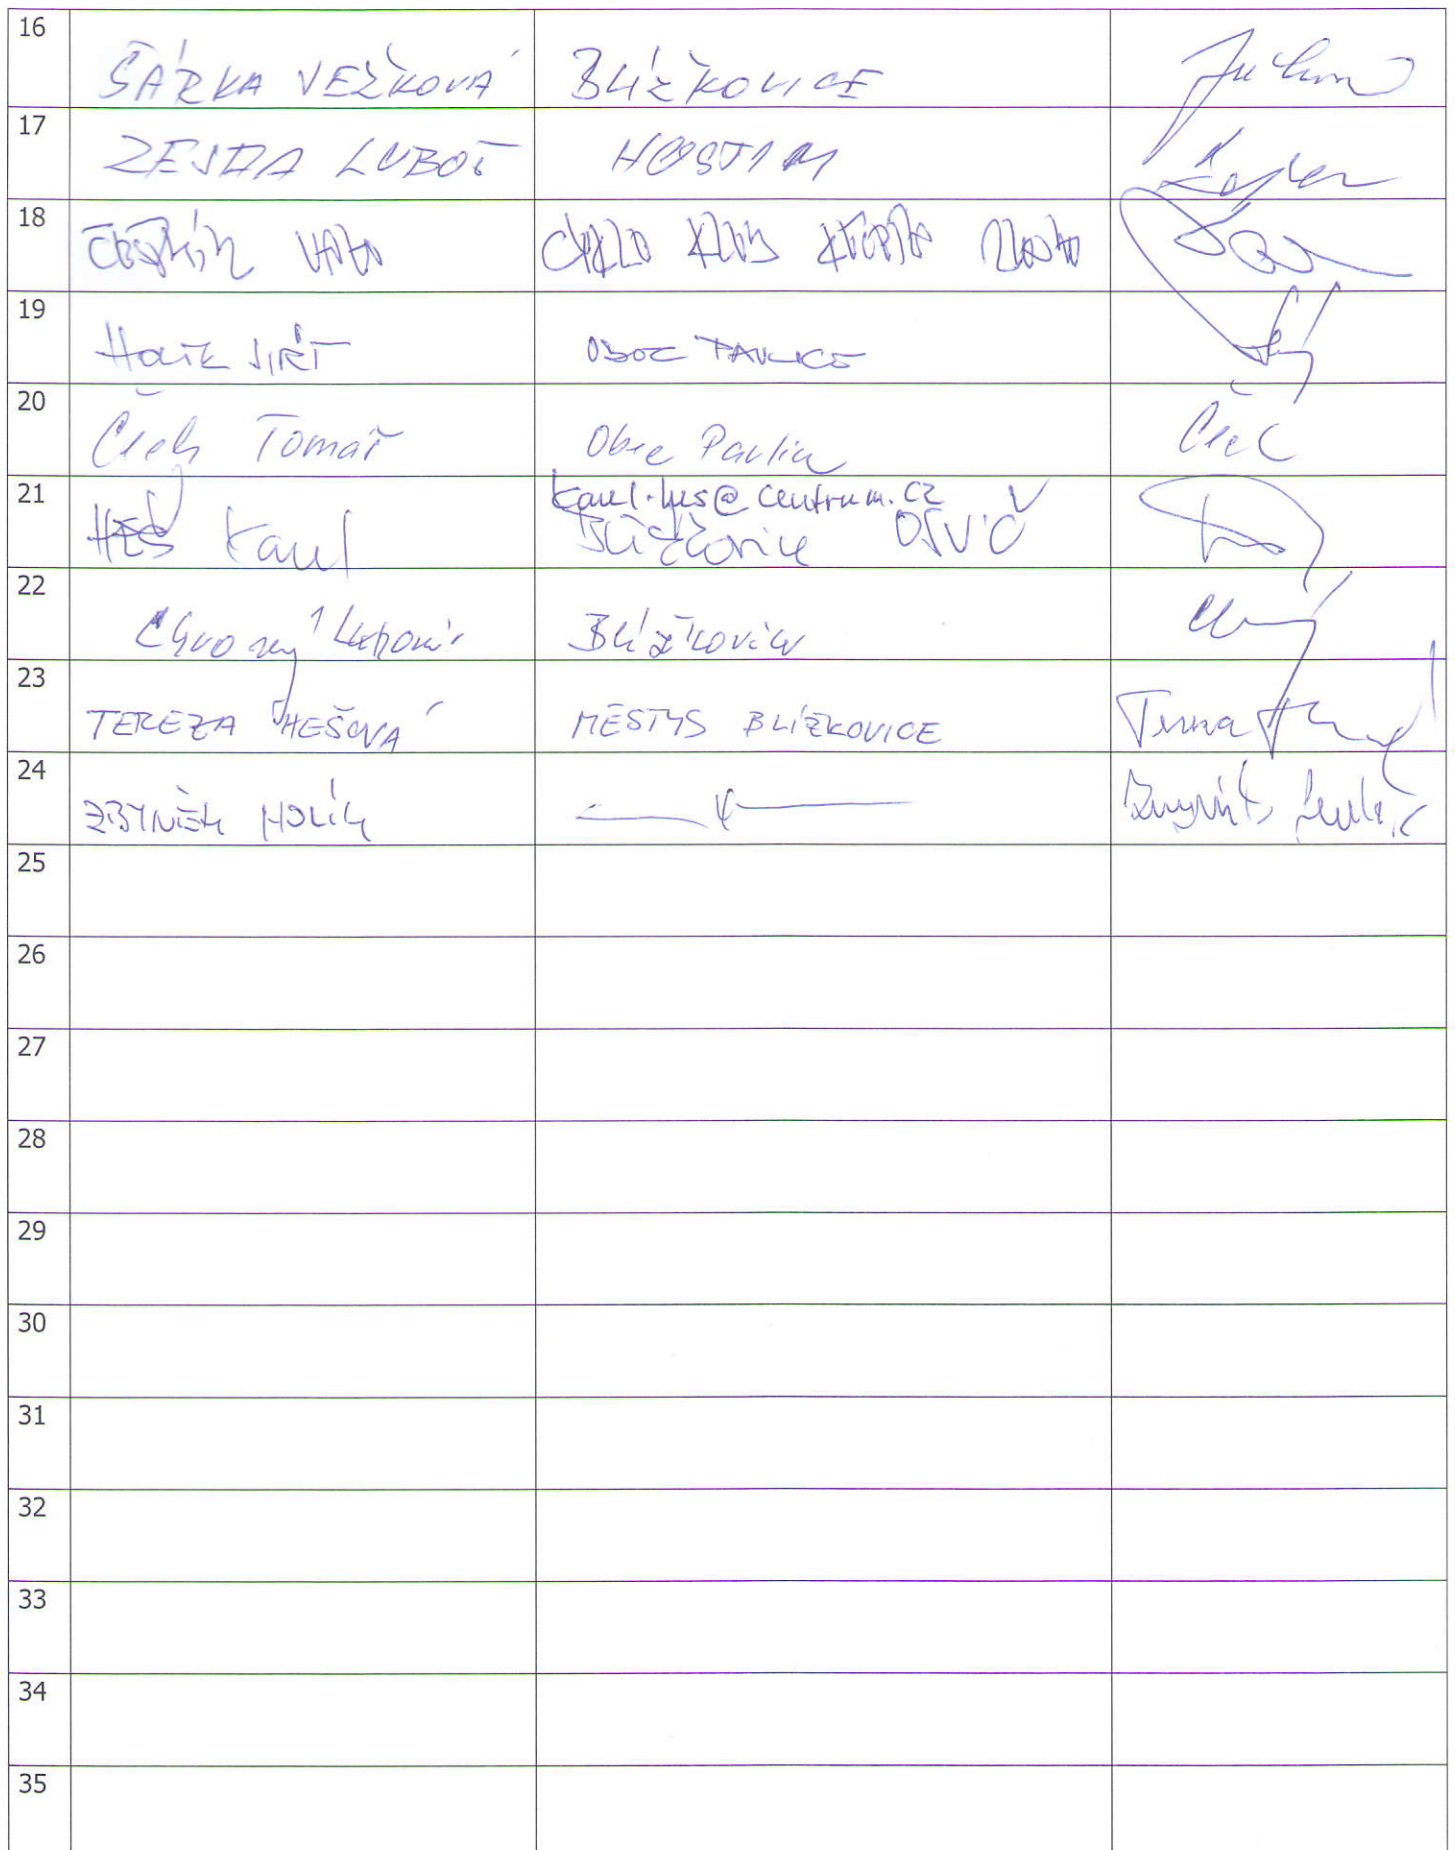 16 ŠÁRKA VEŽKOVÁ BLÍŽKOVICE
17 ZEJDA LUBOŠ HOSTIM
18 CYKLO KLUB
19 HOLÍK JIŘÍ OBEC PAVLICE
20 Čech Tomáš Obec Pavlice Čech
21 HEŠ Karel karel.hes@centrum.cz
Blížkovice OSVČ
22 Chvorný Lubomír Blížkovice
23 TEREZA HEŠOVÁ MĚSTYS BLÍŽKOVICE Tereza
24 ZBYNĚK HOLÍK
25
26
27
28
29
30
31
32
33
34
35